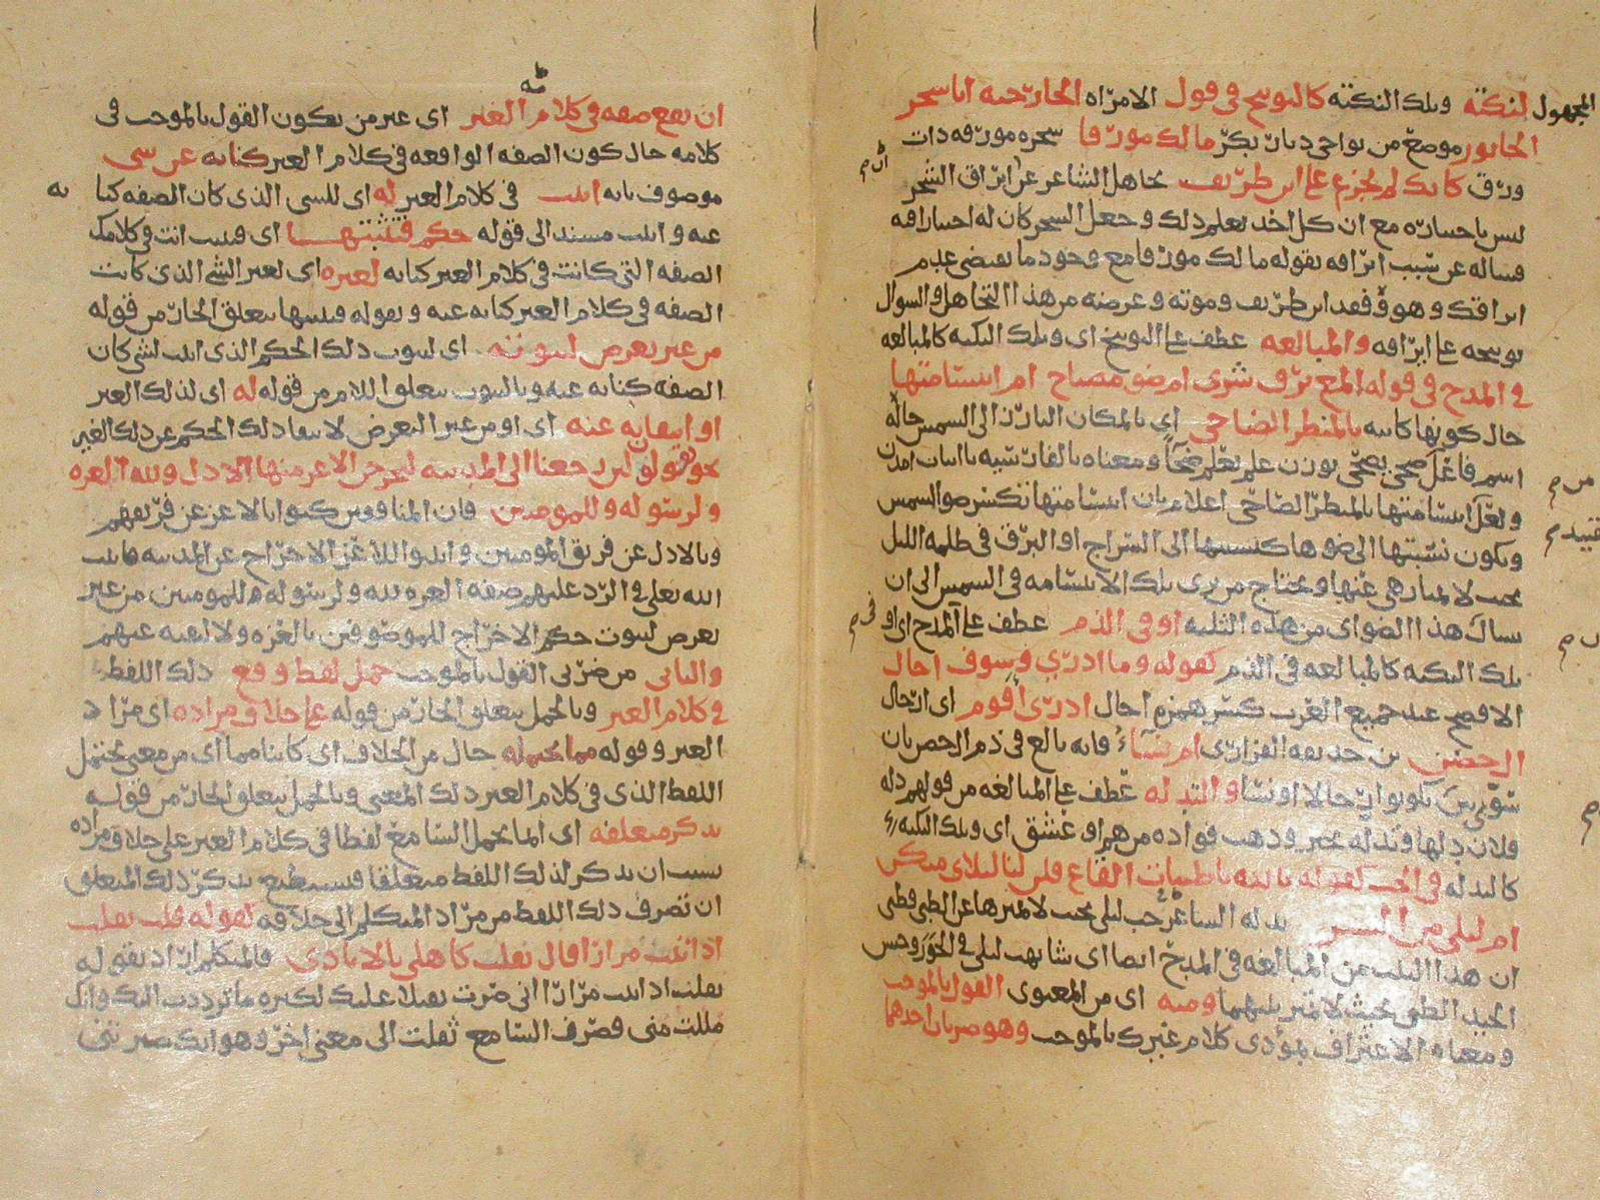 المجهول لنكتة وتلك النكتة كالتوبيخ في قول الامراه الخارجيه ايا شجر
الخابور موضع من نواحي ديار بكر مالك مورقا شجره مورقه ذات
ورق كانك لم تجزع على ابن طريف تجاهل الشاعر عن ايراق الشجر
ليس باختياره مع ان كل احد يعلم ذلك وجعل الشجر كان له اختيارا فيه
فساله عن سبب ايراقه بقوله مالك مورقا مع وجود ما يقتضي عدم
ايراقك وهو فقد ابن طريف وموته وغرضه من هذا التجاهل والسوال
توبيخه على ايراقه والمبالغه عطف على التوبيخ اي وتلك النكته كالمبالغه
في المدح في قوله المع برق سرى ام ضو مصباح ام ابتسامتها
حال كونها كاينه بالمنظر الضاحي اي بالمكان البارز الى الشمس حاله
اسم فاعل ضحي يضحى بوزن علم يعلم ضحا ومعناه بالفارسيه
ولعل ابتسامتها بالمنظر الضاحي اعلام بان ابتسامتها تكسر ضو الشمس
ويكون نسبتها الى ضوها كنسبتها الى السراج او البرق في ظلمه الليل
بحيث لا يمتاز هي عنها ويحتاج من يرى تلك الابتسامه في الشمس الى ان
يسال هذا الضو اي من هذه الثلثه او في الذم عطف على المدح اي او
تلك النكته كالمبالغه في الذم كقوله وما ادري وسوف اخال
الافصح عند جميع العرب كسر همزة اخال ادرى اقوم اي ارجال
ال حصن بن حذيفه الفزاري ام نساء فانه بالغ في ذم ال حصن بان
يكونوا رجالا او نسا والتدله عطف على المبالغه من قولهم دله
فلان دلها وتدله تحير وذهب فواده من هم او عشق اي وتلك النكته
كالتدله في الحب كقوله بالله يا ظبيات القاع قلن لنا ليلاي منكن
ام ليلى من البشر تدله الشاعر في حب ليلى بحيث لا يميزها عن الظبي فظني
ان هذا البيت من المبالغه في المدح ايضا اي شابهت ليلى في الحور وحسن
الجيد الظبي بحيث لا تميز بينهما ومنه اي من المعنوي القول بالموجب
ومعناه الاعتراف بمودى كلام غيرك بالموجب وهو ضربان احدهما
ان تقع صفه في كلام الغير اي غير من يكون القول بالموجب في
كلامه حال كون الصفه الواقعه في كلام الغير كنايه عن شي
موصوف بانه اثبت في كلام الغير له اي للشي الذي كان الصفه كنا يه
عنه واثبت مسند الى قوله حكم فتثبتها اي فتثبت انت في كلامك
الصفه التي كانت في كلام الغير كنايه لغيره اي لغير الشي الذي كانت
الصفه في كلام الغير كنايه عنه وبقوله فتثبتها يتعلق الجار من قوله
من غير تعرض لثبوته اي لثبوت ذلك الحكم الذي اثبت لشي كان
الصفه كنايه عنه وبالثبوت يتعلق اللام من قوله له اي لذلك الغير
او انتفايه عنه اي او من غير التعرض لانتفا ذلك الحكم عن ذلك الغير
نحو يقولون لئن رجعنا الى المدينه ليخرجن الاعز منها الاذل ولله العزه
ولرسوله وللمومنين فان المنافقين كنوا بالاعز عن فريقهم
وبالاذل عن فريق المومنين واثبتوا للاعز الاخراج عن المدينه فاثبت
الله تعالى في الرد عليهم صفه العزه لله ولرسوله وللمومنين من غير
تعرض لثبوت حكم الاخراج للموصوفين بالعزه ولا لنفيه عنهم
والثاني من ضربي القول بالموجب حمل لفظ وقع ذلك اللفظ
في كلام الغير وبالحمل يتعلق الجار من قوله على خلاف مراده اي مراد
الغير وقوله مما يحتمله حال من الخلاف اي كاينا مما اي من معنى يحتمل
اللفظ الذي في كلام الغير ذلك المعنى وبالحمل يتعلق الجار من قوله
بذكر متعلقه اي انما يحمل السامع لفظا في كلام الغير على خلاف مراده
بسبب ان يذكر لذلك اللفظ متعلقا فيستطيع بذكر ذلك المتعلق
ان تصرف ذلك اللفظ من مراد المتكلم الى خلافه كقوله قلت ثقلت
اذ اتيت مرارا قال ثقلت كاهلي بالايادي فالمتكلم اراد بقوله
ثقلت اذ اتيت مرارا اني صرت ثقيلا عليك لكثره ما ترددت اليك وانك
مللت مني فصرف السامع ثقلت الى معنى اخر وهو انك صيرتني